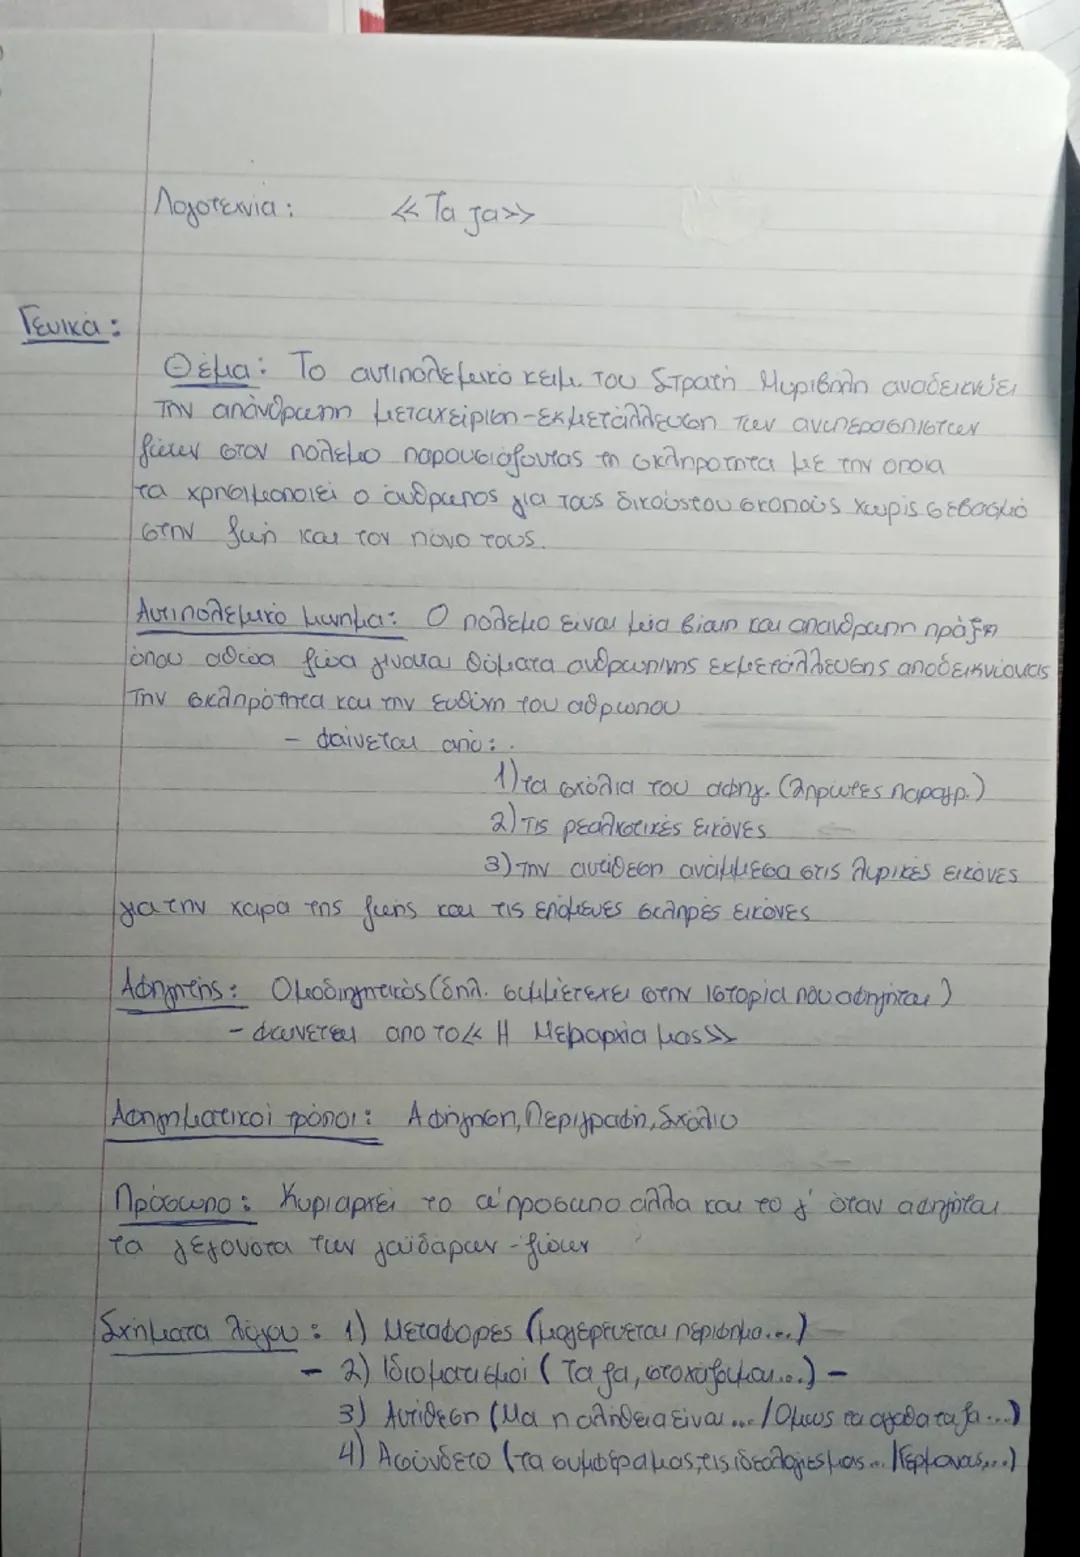 Λογοτεχνία: «Τα ζα»
Γενικά:
Θέμα: Το αντιπολεμικό κειμ. του Στρατή Μυριβήλη αναδεικνύει
την απάνθρωπη μεταχείριση-εκμετάλλευση των ανυπεράσπιστων
ζώων στον πόλεμο παρουσιάζοντας τη σκληρότητα με την οποία
τα χρησιμοποιεί ο άνθρωπος για τους δικούς του σκοπούς χωρίς σεβασμό
στην ζωή και τον πόνο τους.
Αντιπολεμικό μήνημα: Ο πόλεμο είναι μία βίαιη και απάνθρωπη πράξη
όπου αθώα ζώα γίνονται θύματα ανθρωπινης εκμετάλλευσης αποδεικνύοντας
την σκληρότητα και την ευθύνη του αθρωπου
- φαίνεται από:
1) τα σχόλια του αφηγ. (2πρώτες παραγρ.)
2) τις ρεαλιστικές εικόνες
3) την αντίθεση ανάμμεσα στις λυρικές εικόνες
για την χαρα της ζωής και τις επόμενες σκληρές εικόνες
Αφηγητής: Ομοδιηγητικός (δηλ. συμμετεχει στην ιστορία που αφηγήται)
- φαίνεται απο το « Η Μεραρχία μας»
Αφηγηματικοί τρόποι: Αφήγηση, Περιγραφή, Σχόλιο
Πρόσωπο: Κυριαρχεί το α' προσωπο άλλα και το γ' όταν αφηγήται
τα γεγονοτα των γαϊδάρων - ζώων
Σχήματα λόγου: 1) Μεταφορες (μαγερεύεται περίφημα...)
- 2) Ιδιοματισμοί ( Τα ζα, στοχάζομαι...) -
3) Αντίθεση (Μα η αλήθεια είναι ... / Ομως τα αγαθα τα ζα ...)
4) Ασύνδετο (τα συμφέρα μας, τις ιδεολογιες μας ... / Γερμανας, ...)